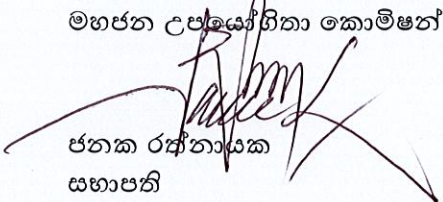 මහජන උපයෝගිතා කොමිෂන්
ජනක රත්නායක
සභාපති